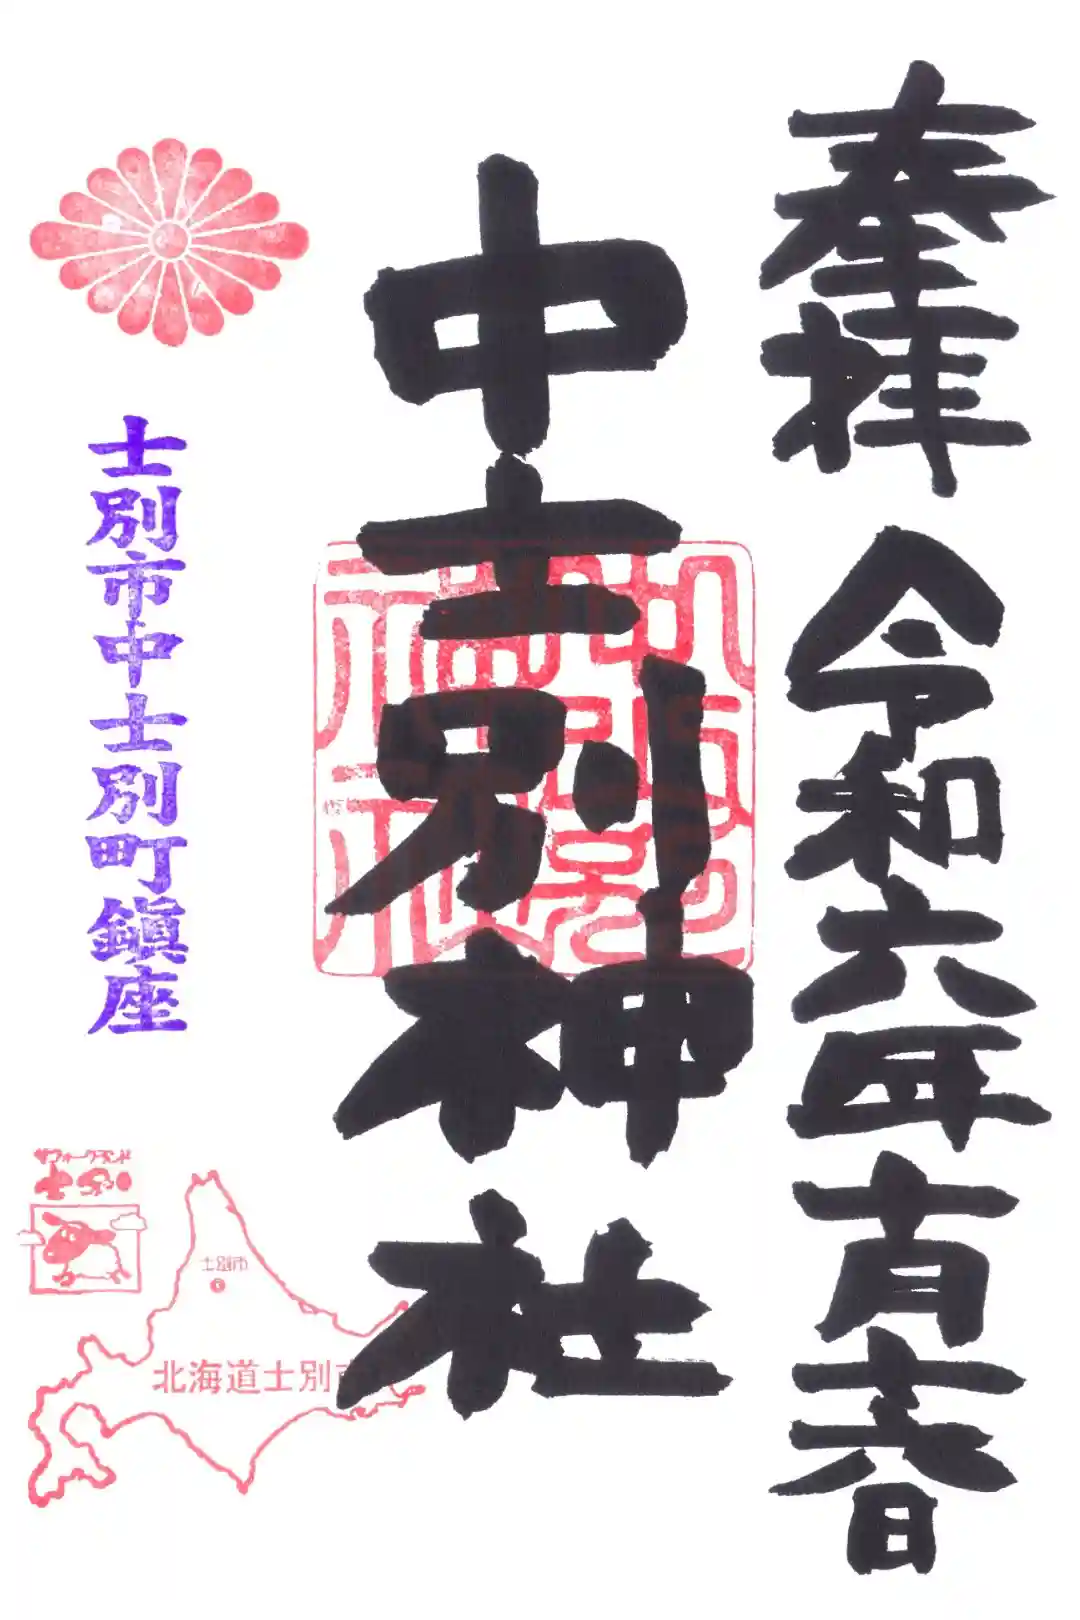 奉拝 令和六年十月十六日
中士別神社
士別市中士別町鎭座
サフォークランド
士別
士別市
北海道士別市